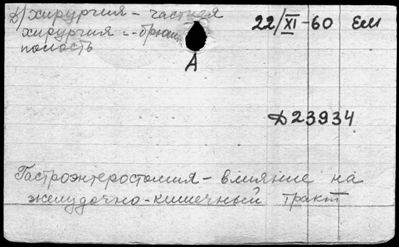 Д) хирургия - частная
хирургия - брюшн
полость
22/XI-60 ЕМ
А
Д23934
Гастроэнтеростомия - влияние на
желудочно-кишечный тракт